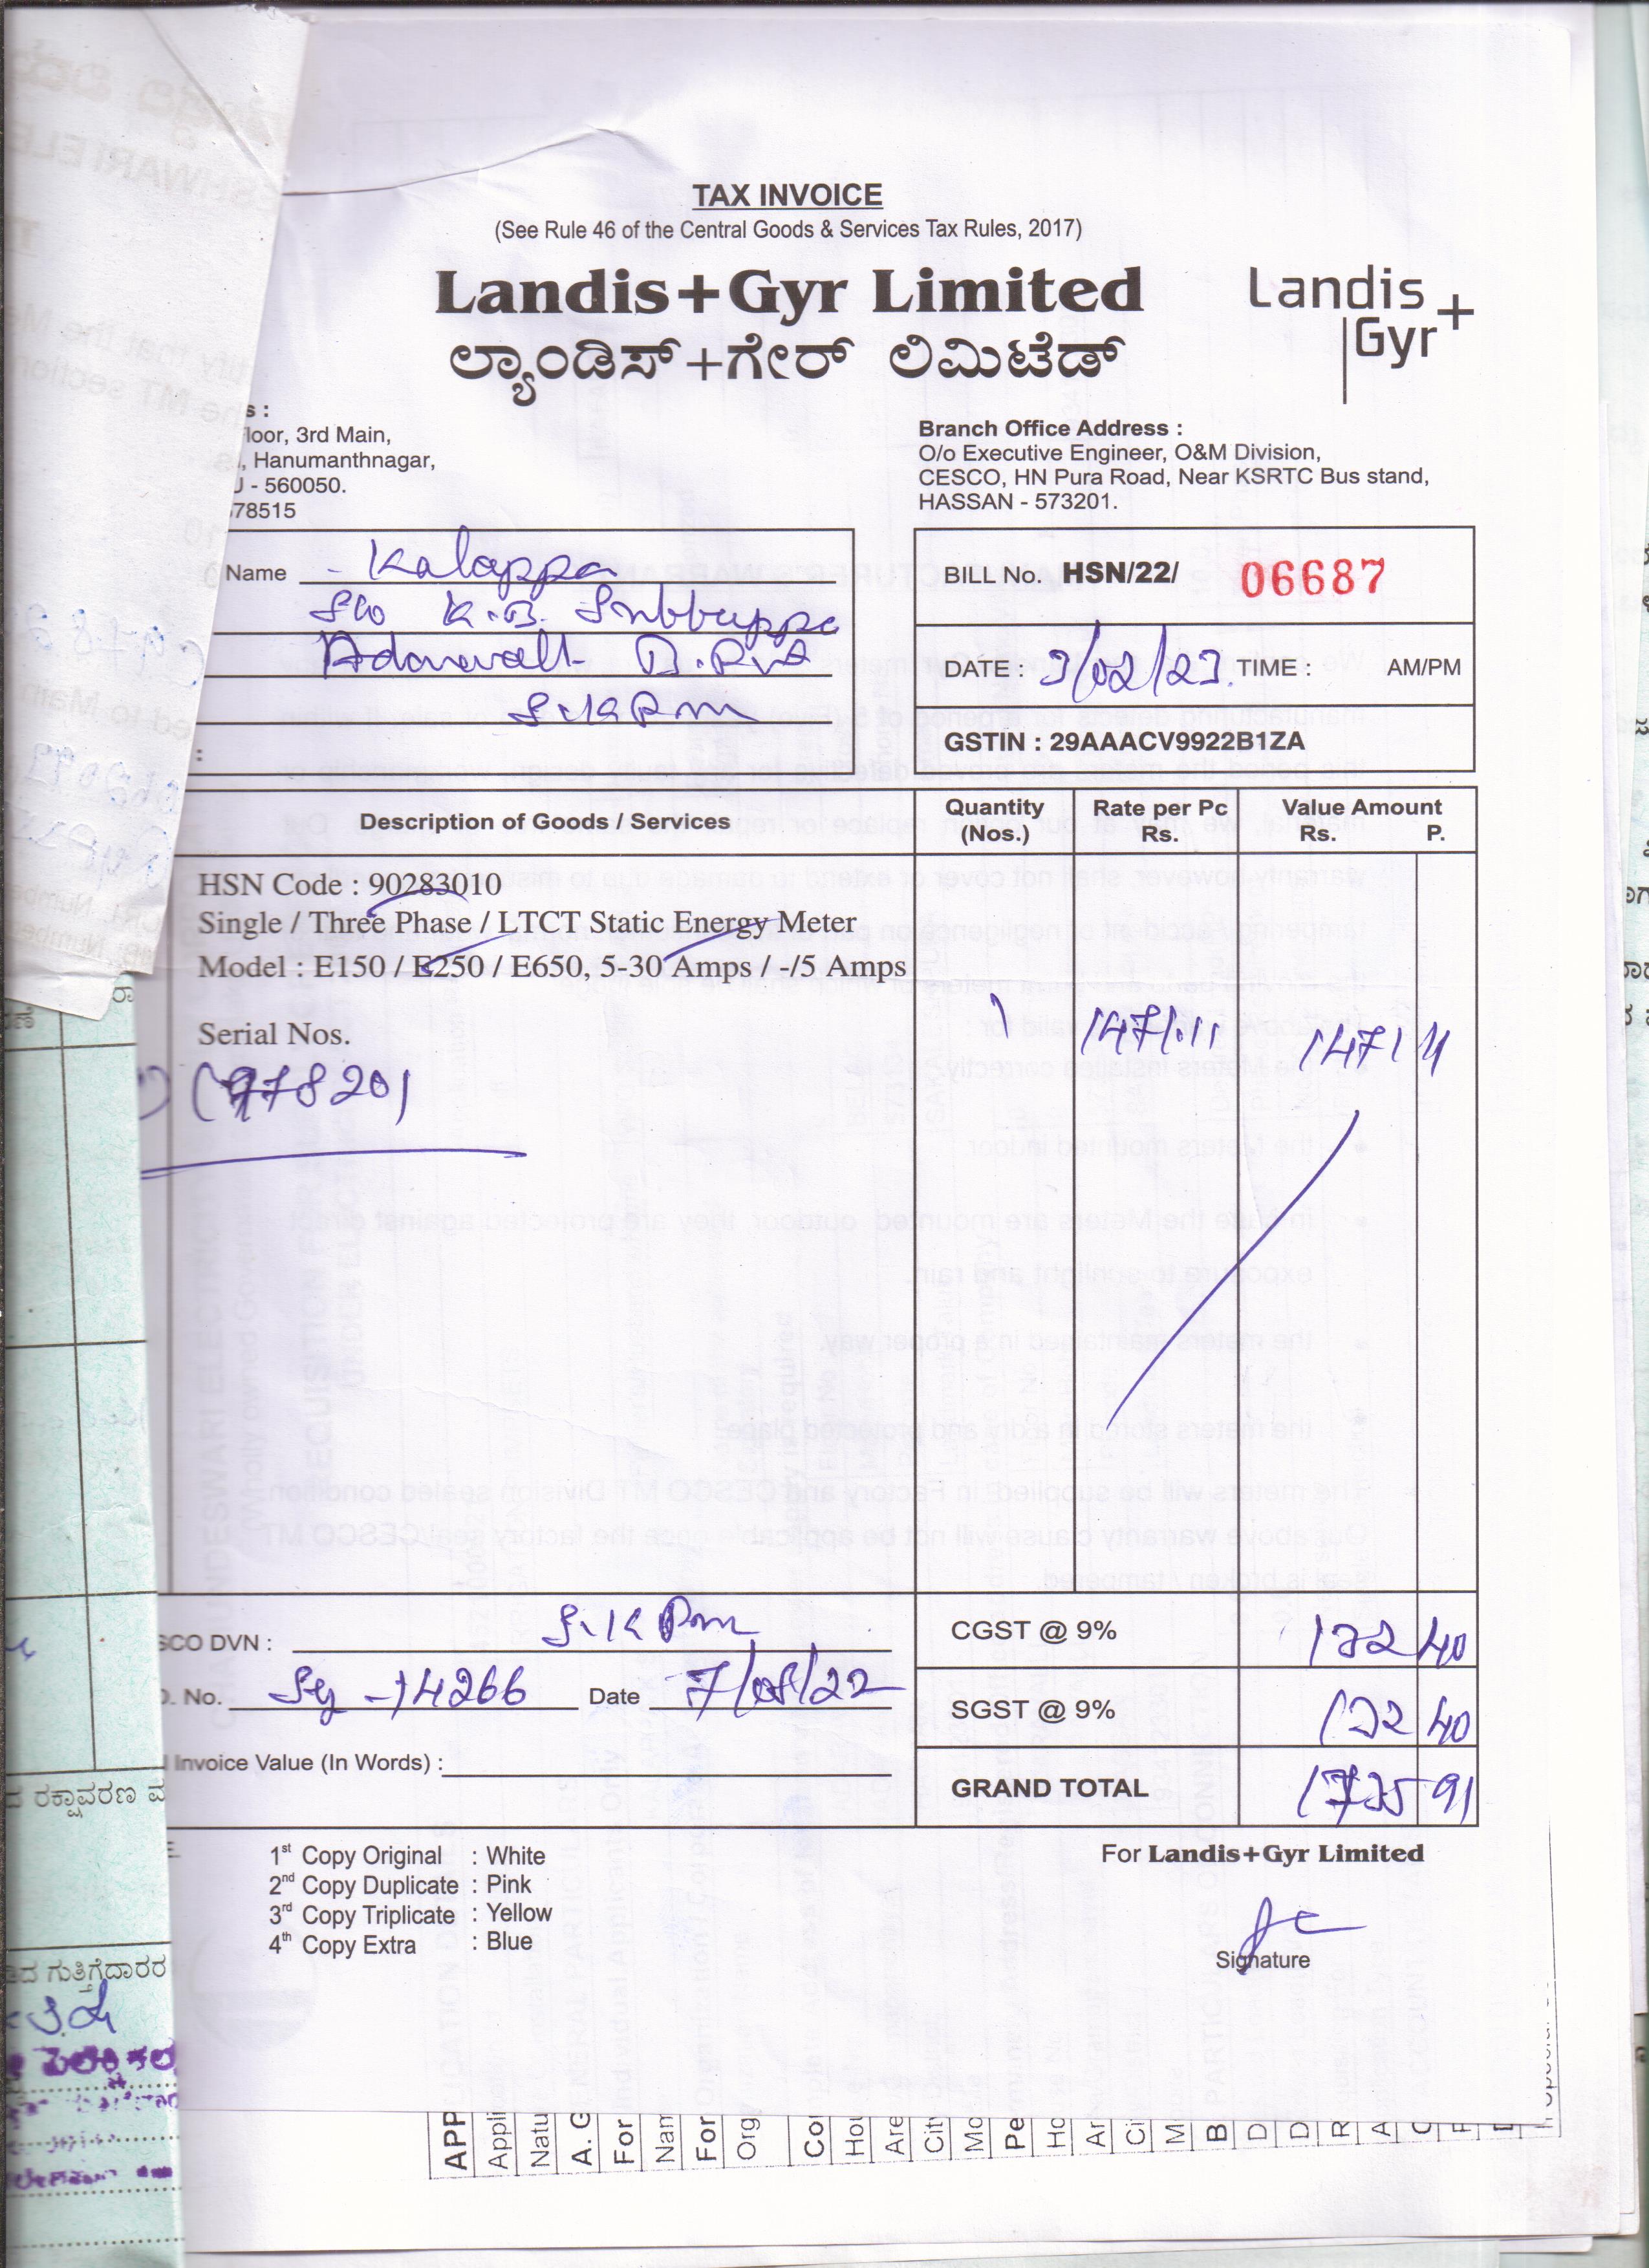 TAX INVOICE
(See Rule 46 of the Central Goods & Services Tax Rules, 2017)
Landis+Gyr Limited
ಲ್ಯಾಂಡಿಸ್+ಗೇರ್ ಲಿಮಿಟೆಡ್
Landis
Gyr+
s :
loor, 3rd Main,
, Hanumanthnagar,
J - 560050.
78515
Branch Office Address :
O/o Executive Engineer, O&M Division,
CESCO, HN Pura Road, Near KSRTC Bus stand,
HASSAN - 573201.
Name - Kalappa
S/o K.B. Subbappa
S.K Pm
:
BILL No. HSN/22/ 06687
DATE : 3/02/23. TIME : AM/PM
GSTIN : 29AAACV9922B1ZA
Description of Goods / Services
Quantity (Nos.)
Rate per Pc Rs.
Value Amount Rs. P.
HSN Code : 90283010
Single / Three Phase / LTCT Static Energy Meter
Model : E150 / E250 / E650, 5-30 Amps / -/5 Amps
Serial Nos.
1 1471.11 1471 11
(97820)
SCO DVN : S.K Pm
CGST @ 9% 132 40
O. No. 14266 Date 7/08/22
SGST @ 9% 132 40
l Invoice Value (In Words) :
GRAND TOTAL 1735 91
1st Copy Original : White
2nd Copy Duplicate : Pink
3rd Copy Triplicate : Yellow
4th Copy Extra : Blue
For Landis+Gyr Limited
Signature
ದ ರಕ್ಷಾವರಣ
ದ ಗುತ್ತಿಗೆದಾರರ
APP
Appli
Natu
A. G
For
Nam
For
Org
Co
Hou
Are
City
Mo
Pe
Ho
Ar
Ci
M
B
D
D
R
A